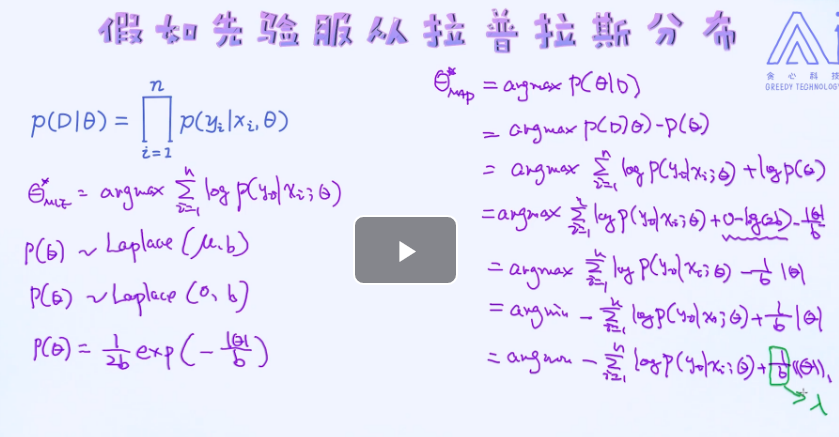 假如先验服从拉普拉斯分布
贪心科技
GREEDY TECHNOLOGY
p(D|θ) = ∏ᵢ₌₁ⁿ p(yᵢ|xᵢ,θ)
θ*MLE = argmax Σᵢ₌₁ⁿ log p(yᵢ|xᵢ;θ)
p(θ) ~ Laplace(μ,b)
p(θ) ~ Laplace(0,b)
p(θ) = 1/2b exp(-|θ|/b)
θ*MAP = argmax p(θ|D)
= argmax p(D|θ)·p(θ)
= argmax Σᵢ₌₁ⁿ log p(yᵢ|xᵢ;θ) + log p(θ)
= argmax Σᵢ₌₁ⁿ log p(yᵢ|xᵢ;θ) + 0-log(2b) - |θ|/b
= argmax Σᵢ₌₁ⁿ log p(yᵢ|xᵢ;θ) - 1/b |θ|
= argmin - Σᵢ₌₁ⁿ log p(yᵢ|xᵢ;θ) + 1/b |θ|
= argmin - Σᵢ₌₁ⁿ log p(yᵢ|xᵢ;θ) + 1/b ||θ||₁
λ